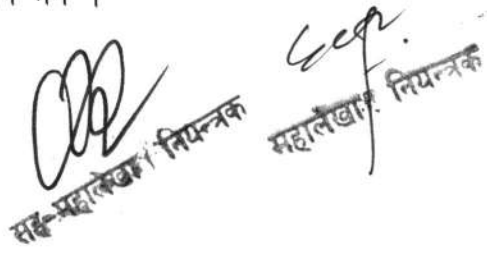 सह-महालेखा नियन्त्रक
महालेखा नियन्त्रक